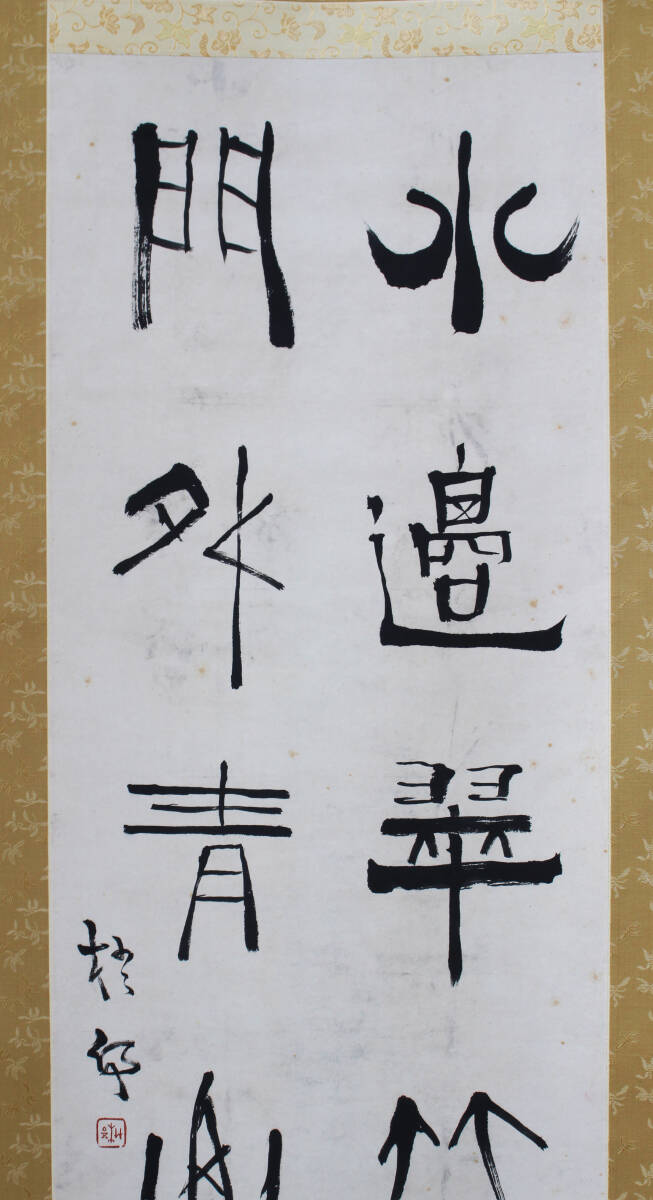 水邊翠竹
門外青山